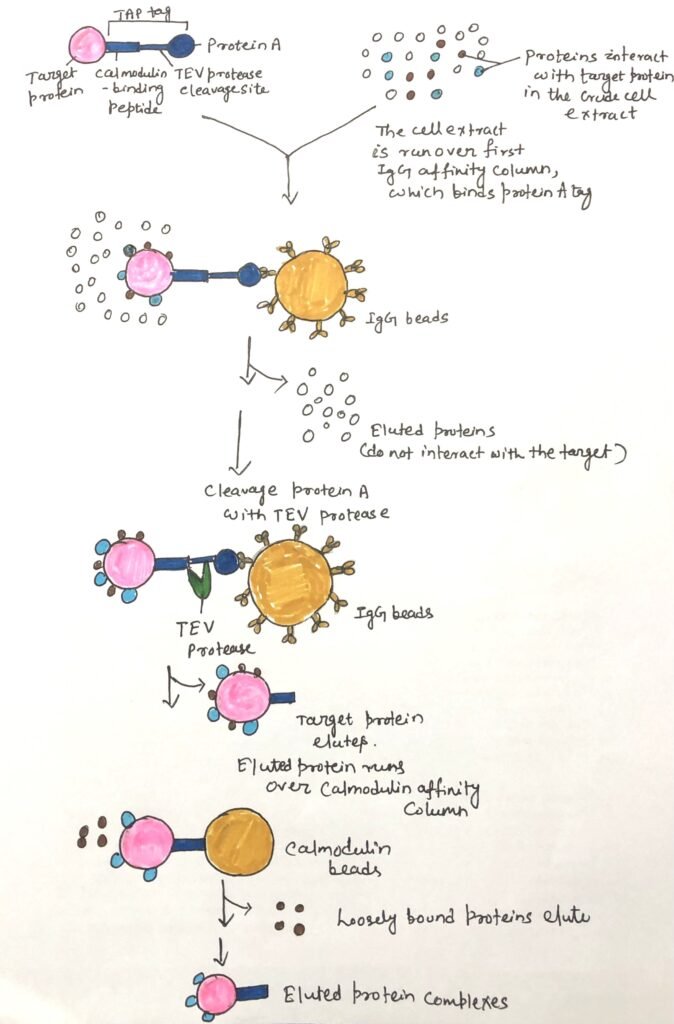 TAP tag
Protein A
Target
protein
Calmodulin
-binding
peptide
TEV protease
cleavage site
Proteins interact
with target protein
in the crude cell
extract
The cell extract
is run over first
IgG affinity column,
which binds protein A tag
IgG beads
Eluted proteins
(do not interact with the target)
Cleavage protein A
with TEV protease
IgG beads
TEV
Protease
Target protein
elutes.
Eluted protein runs
over Calmodulin affinity
Column
Calmodulin
beads
Loosely bound proteins elute
Eluted protein complexes